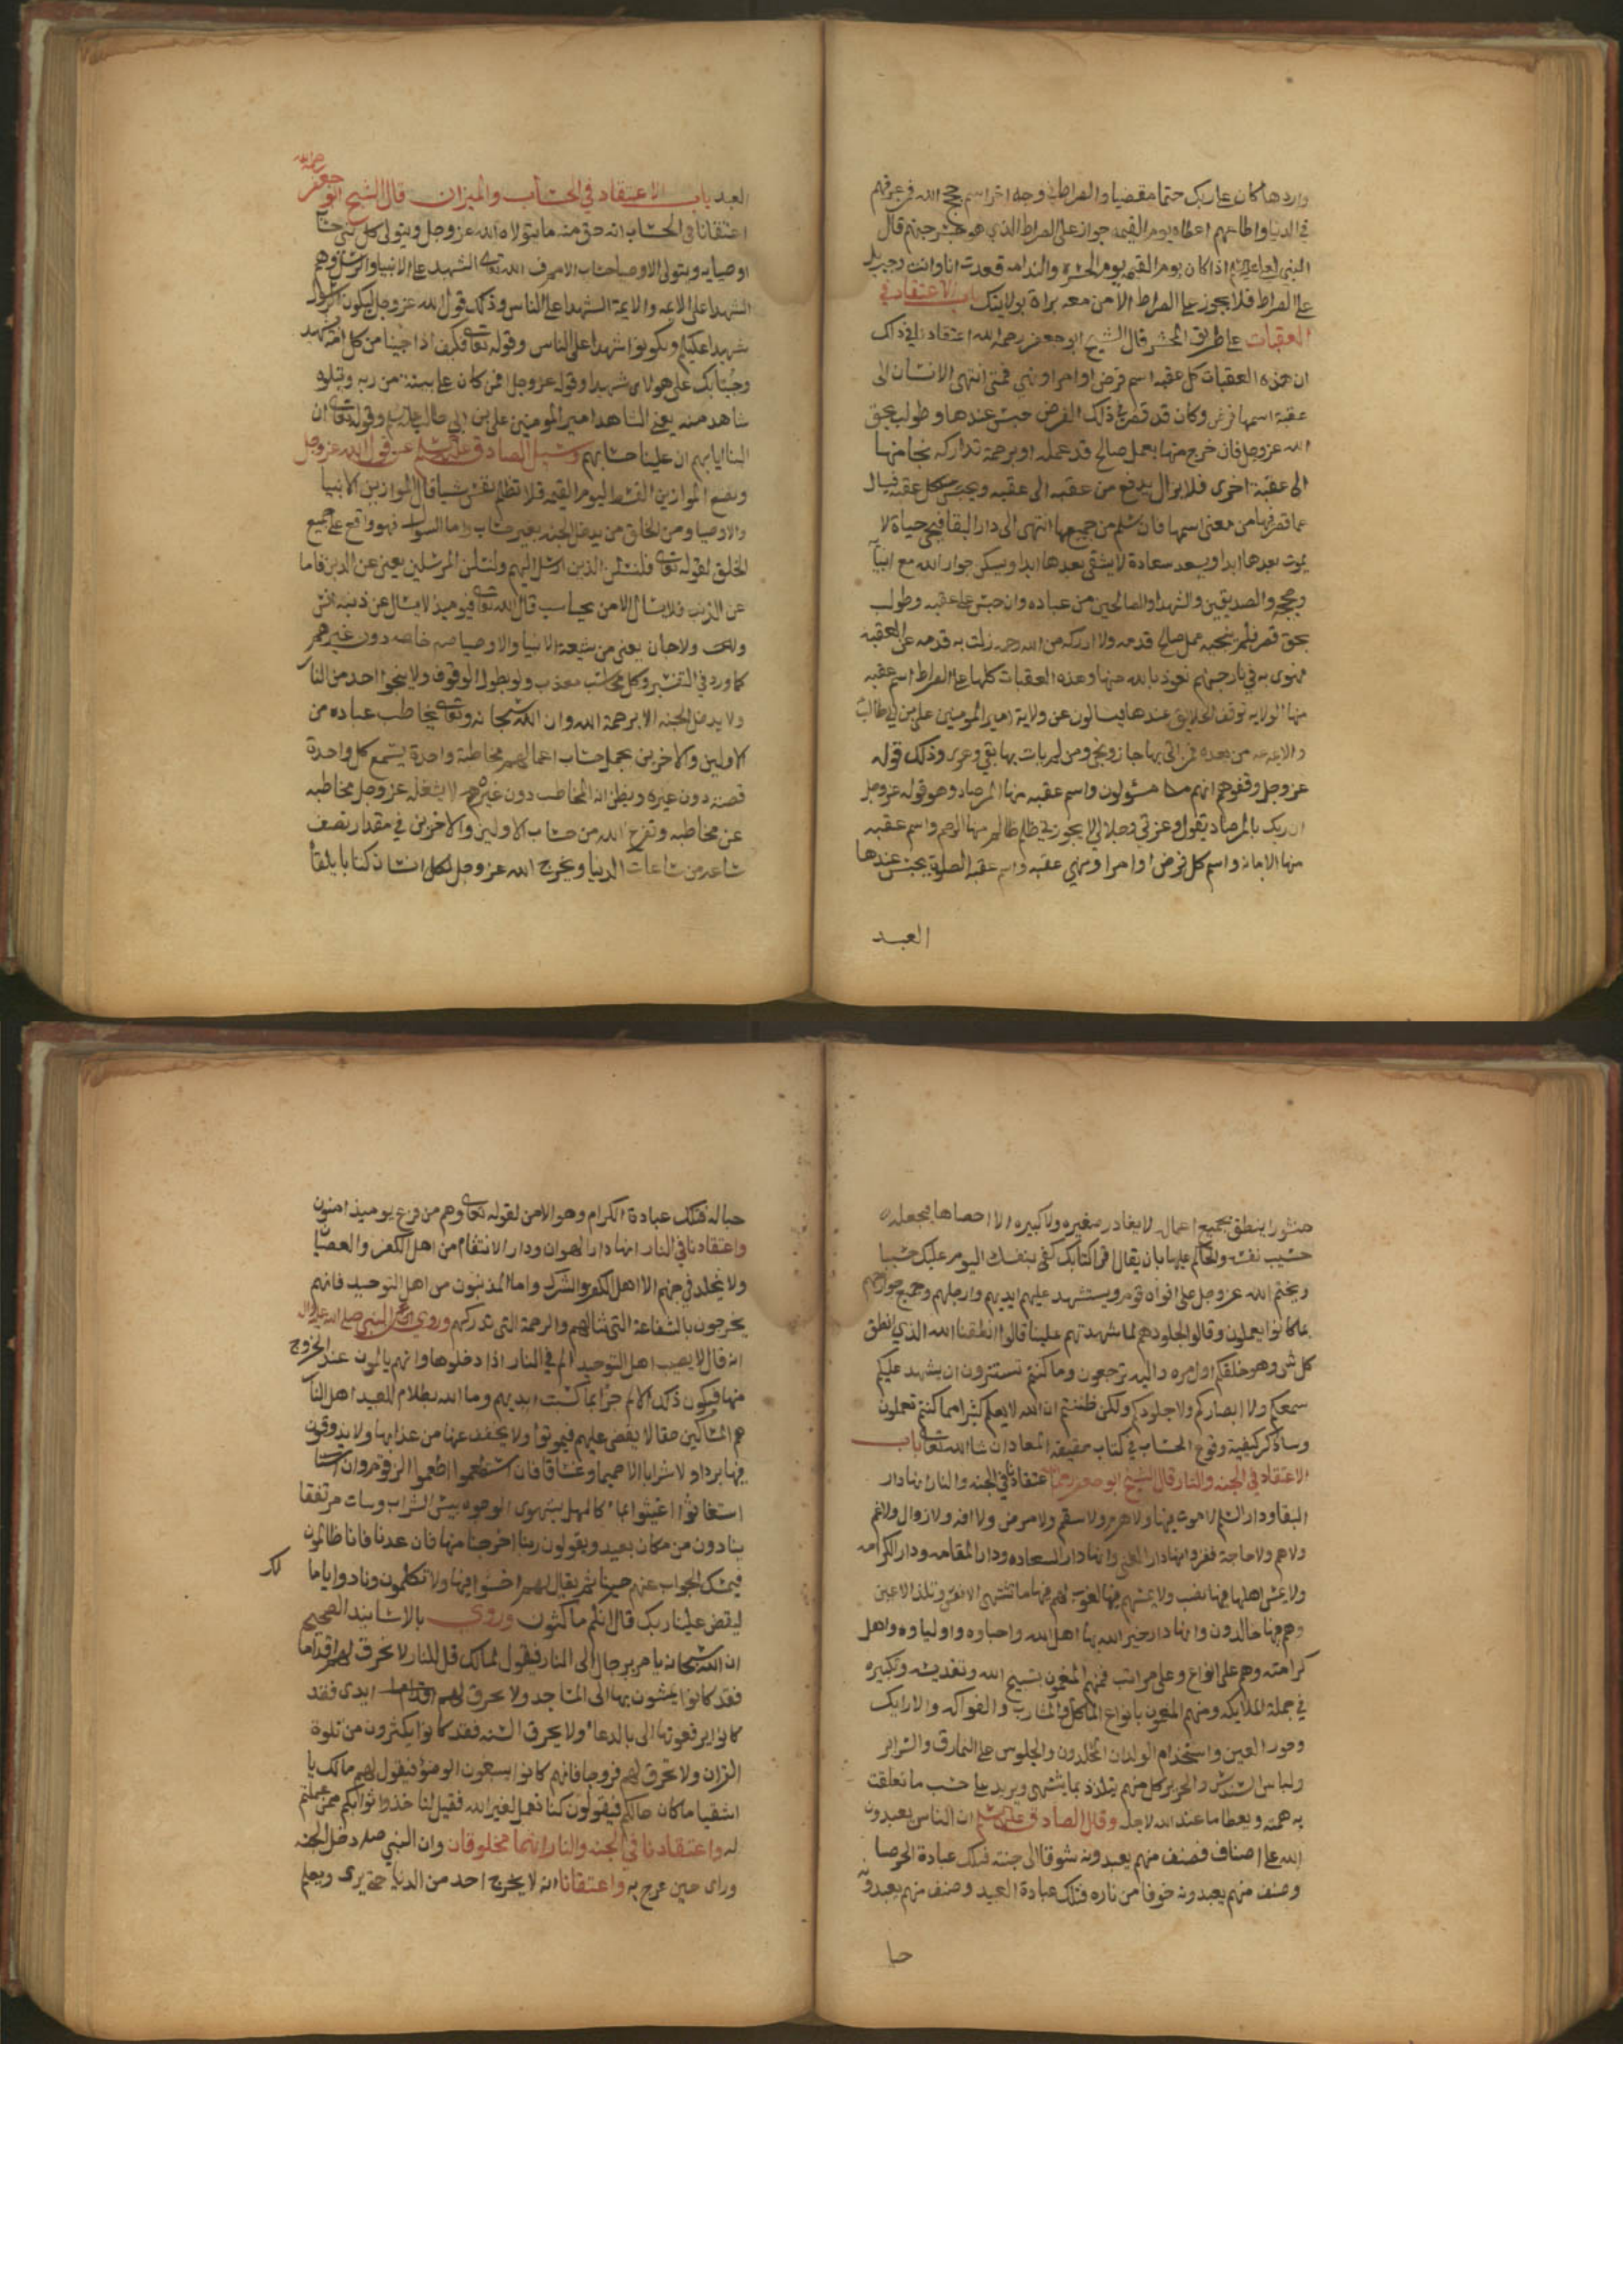 واردها كان على ربك حتما مقضيا والصراط في وجه اخر اسم حجج الله فمن عرفهم
في الدنيا واطاعهم اعطاه يوم القيمه جواز على الصراط الذي هو جسر جهنم قال
النبي لعلي يا علي اذا كان يوم القيمه يوم الحسرة والندامه قعدت انا وانت وجبريل
على الصراط فلا يجوز على الصراط الا من معه براة بولايتك باب الاعتقاد في
العقبات على طريق المحشر قال الشيخ ابو جعفر رحمه الله اعتقادنا في ذلك
ان هذه العقبات كل عقبه اسم فرض او امر او نهي فمتى انتهى الانسان الى
عقبة اسمها فرض وكان قد قصر في ذلك الفرض حبس عندها وطولب بحق
الله عز وجل فان خرج منها بعمل صالح قد عمله او برحمة تداركه نجا منها
الى عقبة اخرى فلا يزال يدفع من عقبه الى عقبه ويحبس كل عقبه فيسال
عما قصر فيها من معنى اسمها فان سلم من جميعها انتهى الى دار البقا فيحيى حياة لا
يموت بعدها ابدا ويسعد سعادة لا يشقى بعدها ابدا ويسكن جوار الله مع انبيائه
وحججه والصديقين والشهدا والصالحين من عباده وان حبس على عقبه وطولب
بحق قصر فلم ينجيه عمل صالح قدمه ولا ادركه من الله رحمه زلت به قدمه عن العقبة
فهوى به في نار جهنم نعوذ بالله منها وهذه العقبات كلها على الصراط اسم عقبه
منها الولايه توقف الخلايق عندها فيسالون عن ولاية امير المومنين علي بن ابي طالب
والايمه من بعده فمن اتى بها جاز ونجى ومن لم يات بها بقي وذلك قوله
عز وجل وقفوهم انهم مسئولون واسم عقبه منها المرصاد وهو قوله عز وجل
ان ربك بالمرصاد يقول وعزتي وجلالي لا يجوز بي ظلم ظالم واسم عقبه منها الرحم واسم عقبه
منها الامانة واسم كل فرض او امر او نهي عقبه واسم عقبه الصلوة يحبس عندها
العبد
العبد باب الاعتقاد في الحساب والميزان قال الشيخ ابو جعفر رحمه الله
اعتقادنا في الحساب انه حق منه ما يتولاه الله عز وجل ويتولى كل نبي حساب
اوصيايه ويتولى الاوصيا حساب الامم فالله تعالى الشهيد على الانبيا والرسل وهم
الشهدا على الايمه والايمة الشهدا على الناس وذلك قول الله عز وجل ليكون الرسول
شهيدا عليكم وتكونوا شهدا على الناس وقوله تعالى فكيف اذا جينا من كل امة بشهيد
وجينا بك على هولاء شهيدا وقوله عز وجل افمن كان على بينة من ربه ويتلوه
شاهد منه يعني الشاهد امير المومنين علي بن ابي طالب عليه السلم وقوله تعالى ان
الينا ايابهم ان علينا حسابهم وسئيل الصادق عليه السلم عن قول الله عز وجل
ونضع الموازين القسط ليوم القيمه فلا تظلم نفس شيا قال الموازين الانبيا
والاوصيا ومن الخلق من يدخل الجنه بغير حساب واما السوال فهو واقع على جميع
الخلق لقوله تعالى فلنسئلن الذين ارسل اليهم ولنسئلن المرسلين يعني عن الدين فاما
عن الذنب فلا يسال الا من يحاسب قال الله تعالى فيوميذ لا يسال عن ذنبه انس
ولا جان يعني من شيعة الانبيا والاوصيا صه خاصه دون غيرهم
كما ورد في التفسير وكل محاسب معذب ولو بطول الوقوف ولا ينجوا احد من النار
ولا يدخل الجنه الا برحمة الله وان الله سبحانه وتعالى يخاطب عباده من
الاولين والاخرين بجمل حساب اعمالهم مخاطبة واحدة يستمع كل واحدة
قصته دون غيره ويظن انه المخاطب دون غيره لا يشغله عز وجل مخاطبه
عن مخاطبه وتفرغ الله من حساب الاولين والاخرين في مقدار نصف
ساعه من ساعات الدنيا ويخرج الله عز وجل لكل انسان كتابا يلقاه
منشورا ينطق بجميع اعماله لا يغادر صغيره ولا كبيره الا احصاها فيجعله الله
حسيب نفسه والحاكم عليها بان يقال اقرا كتابك كفى بنفسك اليوم عليك حسيبا
ويختم الله عز وجل على افواه قوم ويستشهد عليهم ايديهم وارجلهم وجميع جوارحهم
بما كانوا يعملون وقالوا لجلودهم لما شهدتم علينا قالوا انطقنا الله الذي انطق
كل شي وهو خلقكم اول مره واليه ترجعون وما كنتم تستترون ان يشهد عليكم
سمعكم ولا ابصاركم ولا جلودكم ولكن ظننتم ان الله لا يعلم كثيرا مما كنتم تعملون
وساذكر كيفية وقوع الحساب في كتاب حقيقة المعاد ان شا الله تعالى باب
الاعتقاد في الجنه والنار قال الشيخ ابو جعفر رحمه الله اعتقادنا في الجنه والنار انها دار
البقا ودار السلم لا موت فيها ولا هرم ولا سقم ولا مرض ولا افه ولا زوال ولا غم
ولا هم ولا حاجة ففر انها دار الغنى وانها دار السعاده ودار المقامه ودار الكرامه
ولا يمس اهلها فيها نصب ولا يمسهم فيها لغوب لهم فيها ما تشتهى الانفس وتلذ الاعين
وهم فيها خالدون وانها دار جيرانه الله بها اهل الله واحباوه واولياوه واهل
كرامته وهم على انواع وعلى مراتب فمنهم المنعمون بتسبيح الله وتقديسه وتكبيره
في جملة الملايكه ومنهم المنعمون بانواع الماكل والمشارب والفواكه والارايك
وحور العين واستخدام الولدان المخلدون والجلوس على النمارق والسراير
ولباس السندس والحرير كل منهم يتلذذ بما يشتهى ويريد على حسب ما تعلقت
به همته ويعطا ما عند الله لاجله وقال الصادق عليه السلم ان الناس يعبدون
الله على اصناف فصنف منهم يعبدونه شوقا الى جنته فتلك عبادة الحرصا
وصنف منهم يعبدونه خوفا من ناره فتلك عبادة العبيد وصنف منهم يعبدونه
حبا
حبا له فتلك عبادة الكرام وهو الامن لقوله تعالى وهم من فزع يوميذ امنون
واعتقادنا في النار انها دار الهوان ودار الانتقام من اهل الكفر والعصيان
ولا يخلد في جهنم الا اهل الكفر والشرك واما المذنبون من اهل التوحيد فانهم
يخرجون بالشفاعة التي تنالهم والرحمة التي تدركهم وروي عن النبي صلى الله عليه واله
انه قال لا يصيب اهل التوحيد الم في النار اذا دخلوها وانهم يالمون عند الخروج
منها فيكون ذلك الالم جزا بما كسبت ايديهم وما الله بظلام للعبيد اهل النار
هم المساكين حقا لا يقضى عليهم فيموتوا ولا يخفف عنها من عذابها ولا يذوقون
فيها بردا ولا شرابا الا حميما وغساقا فان استطعموا اطعموا الزقوم وان
استغاثوا اغيثوا بماء كالمهل يشوى الوجوه بيس الشراب وسات مرتفقا
ينادون من مكان بعيد ويقولون ربنا اخرجنا منها فان عدنا فانا ظالمون
فيمسك الجواب عنهم حينا ثم يقال لهم اخسوا فيها ولا تكلمون ونادوا يا ما لك
ليقض علينا ربك قال انكم ماكثون وروي بالاسانيد الصحيح
ان الله سبحانه يامر برجال الى النار فيقول لمالك قل للنار لا تحرق لهم اقداما
فقد كانوا يمشون بها الى المساجد ولا تحرق لهم ايدى فقد
كانوا يرفعونها الى بالدعاء ولا يحرق السنه فقد كانوا يكثرون من تلاوة
القران ولا تحرق لهم فروجا فانهم كانوا يسبغون الوضوء فيقول لهم مالك يا
اشقيا ما كان حالكم فيقولون كنا نعمل لغير الله فقيل لنا خذوا ثوابكم ممن عملتم
له واعتقادنا في الجنه والنار انهما مخلوقان وان النبي صلعم دخل الجنه
وراى حين عرج به واعتقادنا انه لا يخرج احد من الدنيا حتى يرى ويعلم